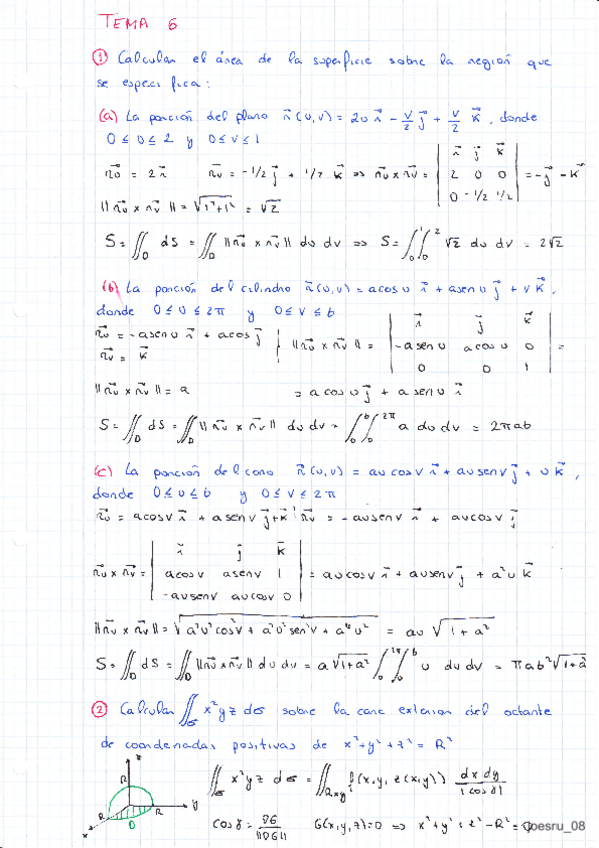 TEMA 6
① Calcular el área de la superficie sobre la región que
se especifica:
(a) La porción del plano r⃗(u,v) = 2u i⃗ - v/2 j⃗ + v/2 k⃗, donde
0 ≤ u ≤ 2 y 0 ≤ v ≤ 1
r⃗u = 2 i⃗ r⃗v = -1/2 j⃗ + 1/2 k⃗ ⇒ r⃗u × r⃗v = | i⃗ j⃗ k⃗ | 2 0 0 | 0 -1/2 1/2 | = -j⃗ - k⃗
||r⃗u × r⃗v|| = √(1²+1²) = √2
S = ∬_D dS = ∬_D ||r⃗u × r⃗v|| du dv ⇒ S = ∫₀¹ ∫₀² √2 du dv = 2√2
(b) La porción del cilindro r⃗(u,v) = a cos u i⃗ + a sen u j⃗ + v k⃗,
donde 0 ≤ u ≤ 2π y 0 ≤ v ≤ b
r⃗u = -a sen u i⃗ + a cos j⃗
r⃗v = k⃗
||r⃗u × r⃗v|| = | i⃗ j⃗ k⃗ | -a sen u a cos u 0 | 0 0 1 | =
||r⃗u × r⃗v|| = a = a cos u j⃗ + a sen u i⃗
S = ∬_D dS = ∬_D ||r⃗u × r⃗v|| du dv = ∫₀ᵇ ∫₀^2π a du dv = 2πab
(c) La porción del cono r⃗(u,v) = au cos v i⃗ + au sen v j⃗ + u k⃗,
donde 0 ≤ u ≤ b y 0 ≤ v ≤ 2π
r⃗u = a cos v i⃗ + a sen v j⃗ + k⃗ r⃗v = -au sen v i⃗ + au cos v j⃗
r⃗u × r⃗v = | i⃗ j⃗ k⃗ | a cos v a sen v 1 | -au sen v au cos v 0 | = au cos v i⃗ + au sen v j⃗ + a²u k⃗
||r⃗u × r⃗v|| = √(a²u² cos²v + a²u² sen²v + a⁴u²) = au √(1+a²)
S = ∬_D dS = ∬_D ||r⃗u × r⃗v|| du dv = a√(1+a²) ∫₀^2π ∫₀ᵇ u du dv = πab²√(1+a²)
② Calcular ∬_σ x²yz dσ sobre la cara exterior del octante
de coordenadas positivas de x²+y²+z² = R²
z R R y x R D
∬_σ x²yz dσ = ∬_Rxy f(x,y,z(x,y)) dx dy / |cos γ|
cos γ = ∇G / ||∇G|| G(x,y,z)=0 ⇒ x²+y²+z²-R² = 0